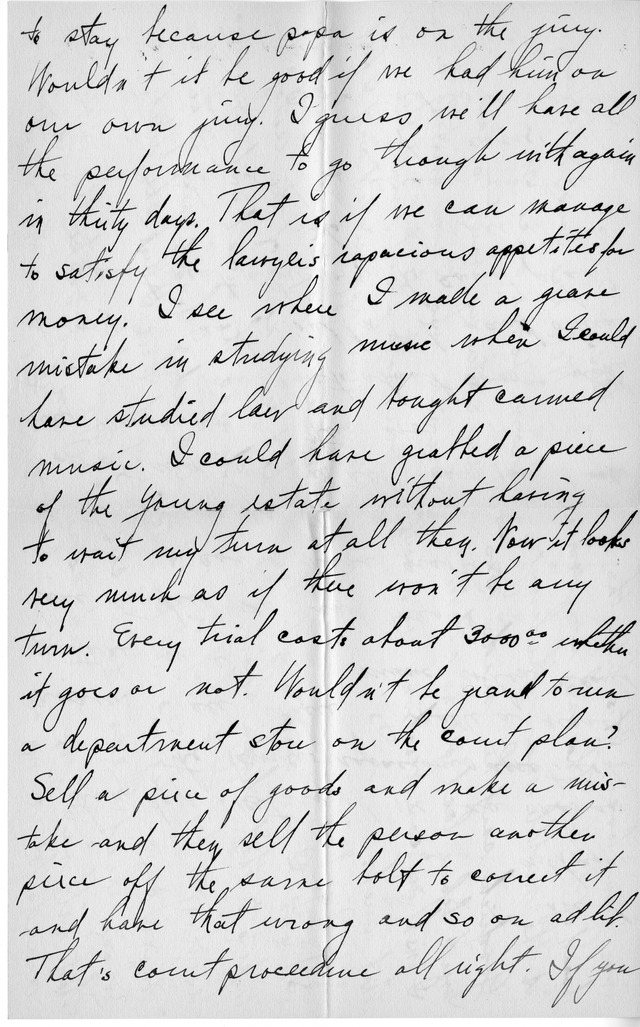 to stay because papa is on the jury.
Wouldn't it be good if we had him on
our own jury. I guess we'll have all
the performance to go through with again
in thirty days. That is if we can manage
to satisfy the lawyers rapacious appetites for
money. I see where I made a grave
mistake in studying music when I could
have studied law and bought canned
music. I could have grabbed a piece
of the Young estate without having
to wait my turn at all then. Now it looks
very much as if there won't be any
turn. Every trial costs about 3000.00 whether
it goes or not. Wouldn't be grand to run
a department store on the court plan?
Sell a piece of goods and make a mis-
take and then sell the person another
piece off the same bolt to correct it
and have that wrong and so on ad lib.
That's court procedure all right. If you